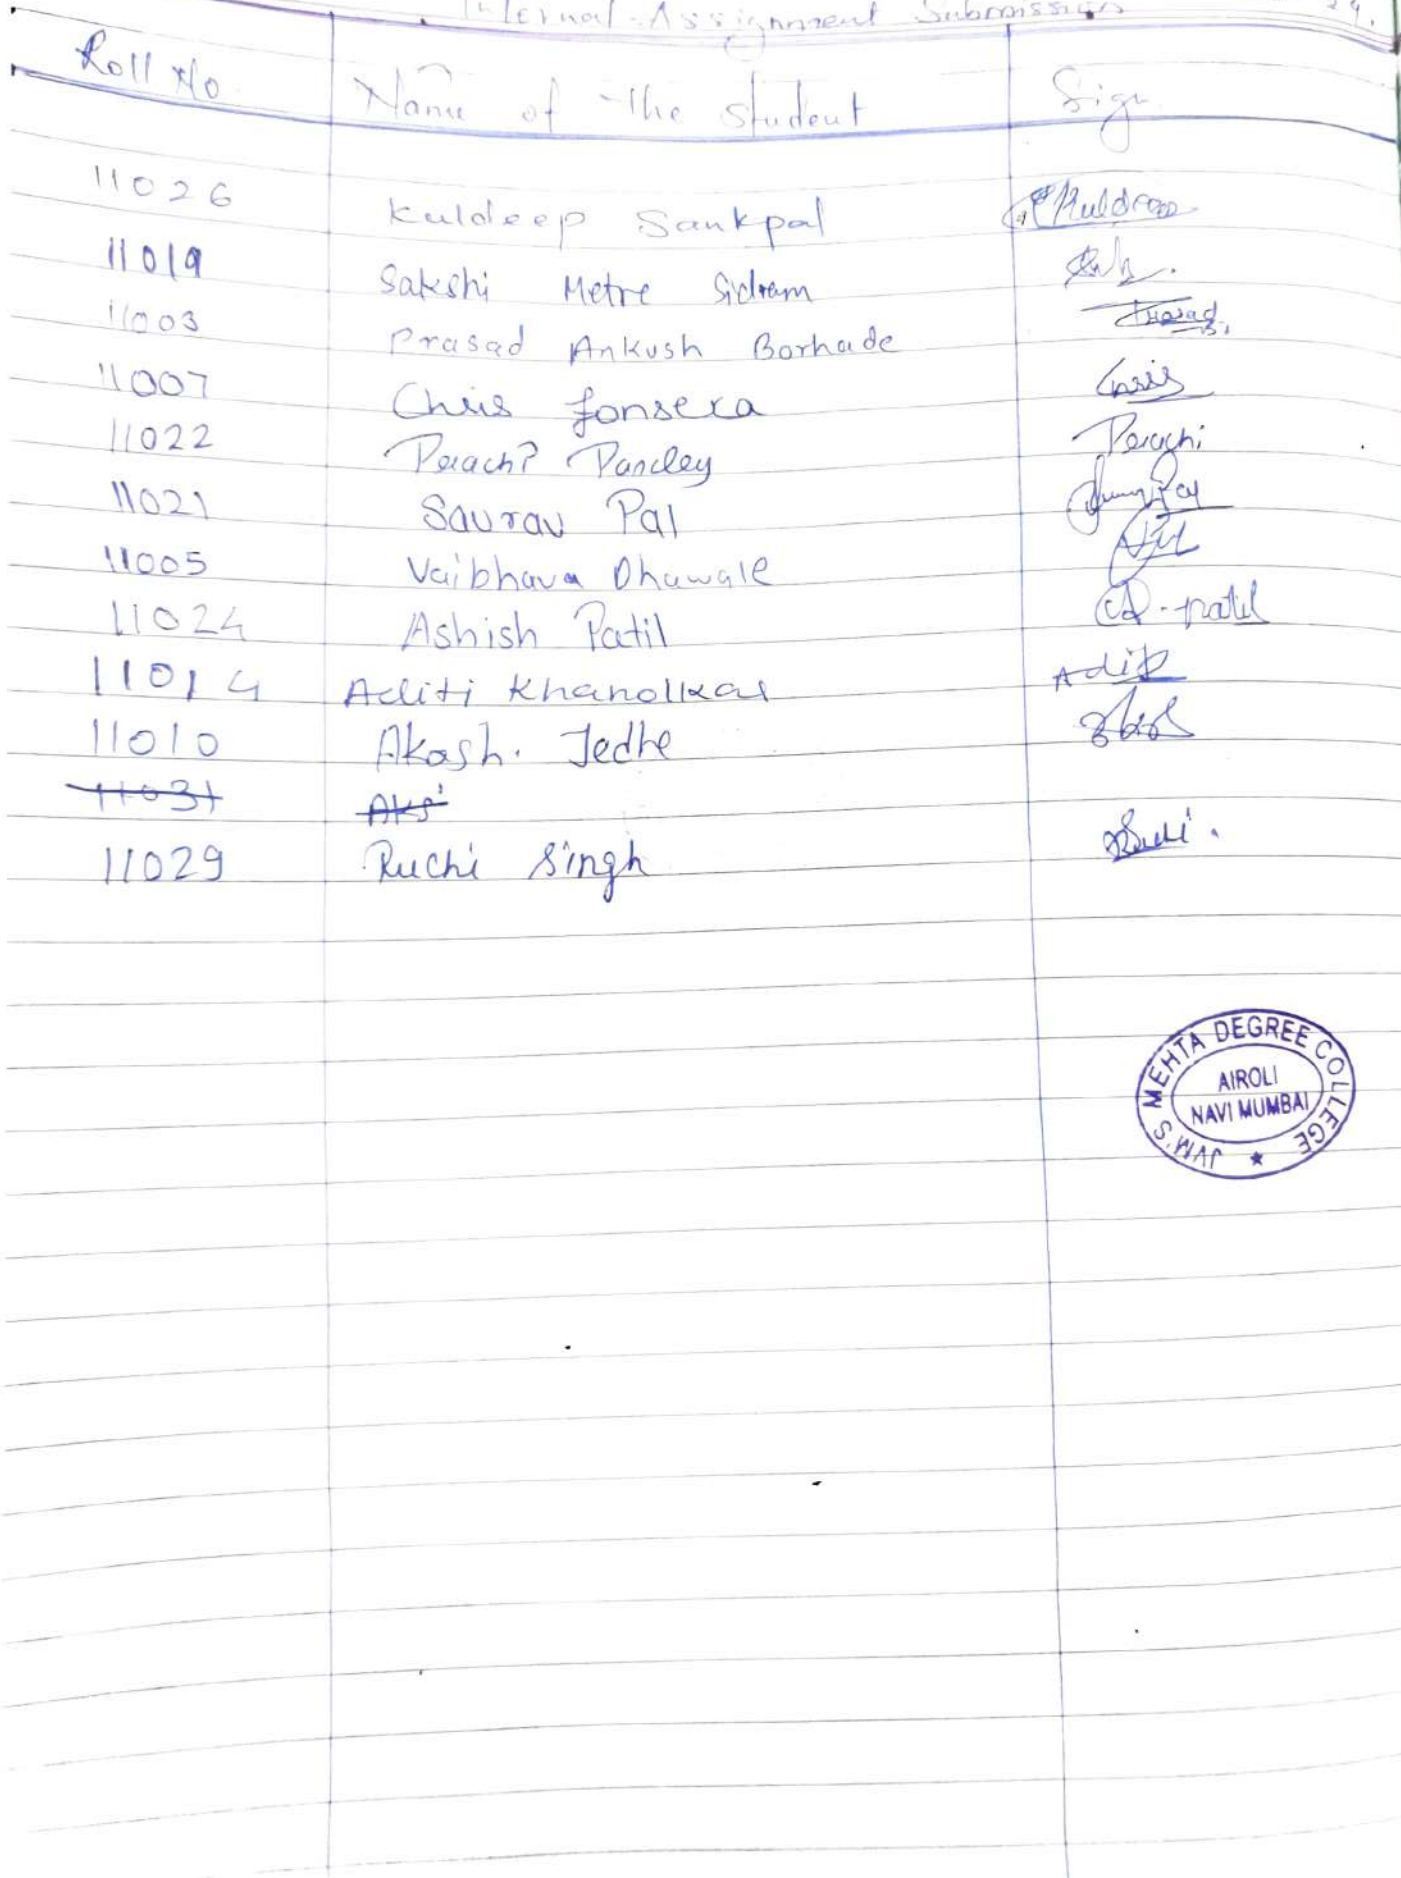 Internal Assignment Submission 24.
Roll No Name of the student Sign
11026 Kuldeep Sankpal Kuldeep
11019 Sakshi Metre Sidram
11003 Prasad Ankush Borhade Prasad
11007 Chris fonseca Chris
11022 Prachi Pandey Prachi
11021 Saurav Pal
11005 Vaibhava Dhawale
11024 Ashish Patil A.patil
11014 Aditi Khanolkar Aditi
11010 Akash. Jedhe
11031 Aks
11029 Ruchi Singh
JVM'S MEHTA DEGREE COLLEGE
AIROLI
NAVI MUMBAI